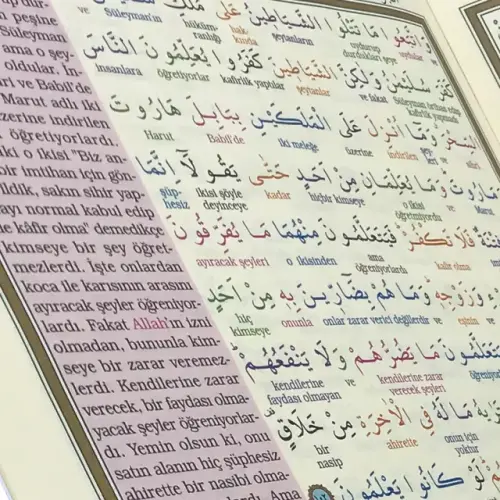 peşine
Süleyman
ama o şey-
oldular. İn-
ri ve Babil'de
Marut adlı iki
zerine indirilen
öğretiyorlardı.
ki o ikisi "Biz an-
bir imtihan için gön-
ildik, sakın sihir yap-
ayı normal kabul edip
de kâfir olma' demedikçe
kimseye bir şey öğret-
mezlerdi. İşte onlardan
koca ile karısının arasını
ayıracak şeyler öğreniyor-
lardı. Fakat Allah'ın izni
olmadan, bununla kim-
seye bir zarar veremez-
lerdi. Kendilerine zarar
verecek, bir faydası olma-
yacak şeyler öğreniyorlar-
dı. Yemin olsun ki, onu
satın alanın hiç şüphesiz
ahirette bir nasibi olma-
lardı. Ama
وَاتَّبَعُوا مَا تَتْلُوا الشَّيَاطِينُ عَلَى مُلْكِ
uydular uydurup durdukları şeye şeyanların hakkında hükümranlığı Süleyman'ın ve
كَفَرَ سُلَيْمٰنُ وَلٰكِنَّ الشَّيَاطِينَ كَفَرُوا يُعَلِّمُونَ النَّاسَ
Süleyman ve fakat şeytanlar kafirlik yapdılar öğretiyorlar insanlara
السِّحْرَ وَمَا اُنْزِلَ عَلَى الْمَلَكَيْنِ بِبَابِلَ هَارُوتَ
ve indirilen üzerine iki meleğe Babil'de Harut
مَارُوتَ وَمَا يُعَلِّمَانِ مِنْ اَحَدٍ حَتّٰى يَقُولَا اِنَّمَا
Marut ve o ikisi öğretmiyordu hiçbir kimseye kadar ikisi şöyle deyinceye şüphesiz
فِتْنَةٌ فَلَا تَكْفُرْ فَيَتَعَلَّمُونَ مِنْهُمَا مَا يُفَرِّقُونَ
kafir olma ama öğreniyorlardı o ikisinden ayıracak şeyleri
وَزَوْجِهِ وَمَا هُمْ بِضَارِّينَ بِهِ مِنْ اَحَدٍ
eşinin ve onlar zarar verici değillerdir ve onunla hiç kimseye
يَتَعَلَّمُونَ مَا يَضُرُّهُمْ وَلَا يَنْفَعُهُمْ
kendilerine zarar verecek şeyleri ve kendilerine faydası olmayan
مَا لَهُ فِي الْاٰخِرَةِ مِنْ خَلَاقٍ
onun için yoktur ahirette bir nasip
لَوْ كَانُوا يَعْلَمُونَ